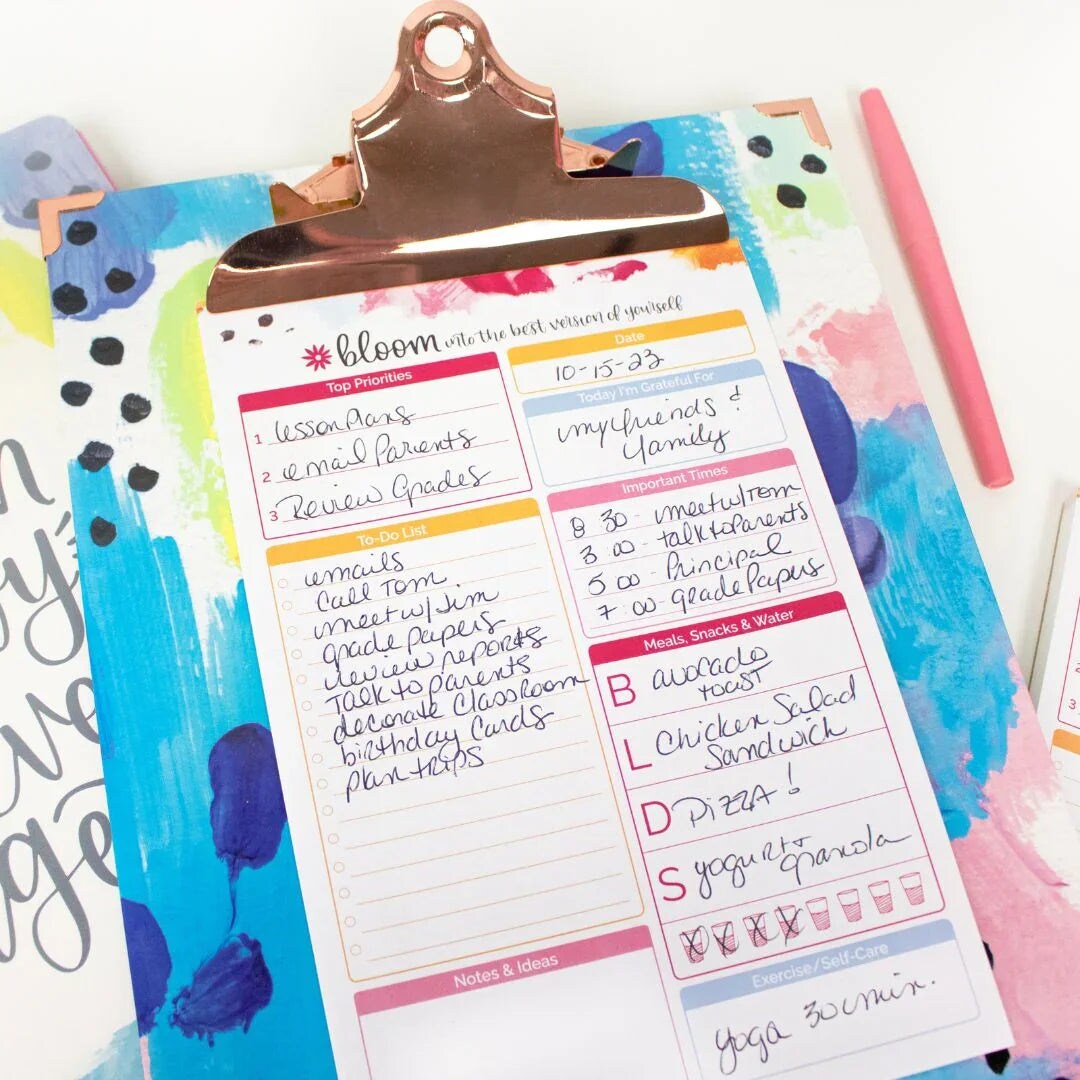 bloom into the best version of yourself
Top Priorities
1 lesson Plans
2 email Parents
3 Review Grades
Date
10-15-23
Today I'm Grateful For
my friends &
family
To-Do List
emails
Call Tom.
meet w/ Jim
grade papers
review reports
Talk to parents
decorate classroom
birthday Cards
plan trips
Important Times
8 30 - meet w/ Tom
3:00 - talk to Parents
5 00 - Principal
7:00 - grade Papers
Meals, Snacks & Water
B avocado
toast
L Chicken Salad
Sandwich
D PIZZA!
S yogurt +
granola
Notes & Ideas
Exercise/Self-Care
yoga 30 min.
3